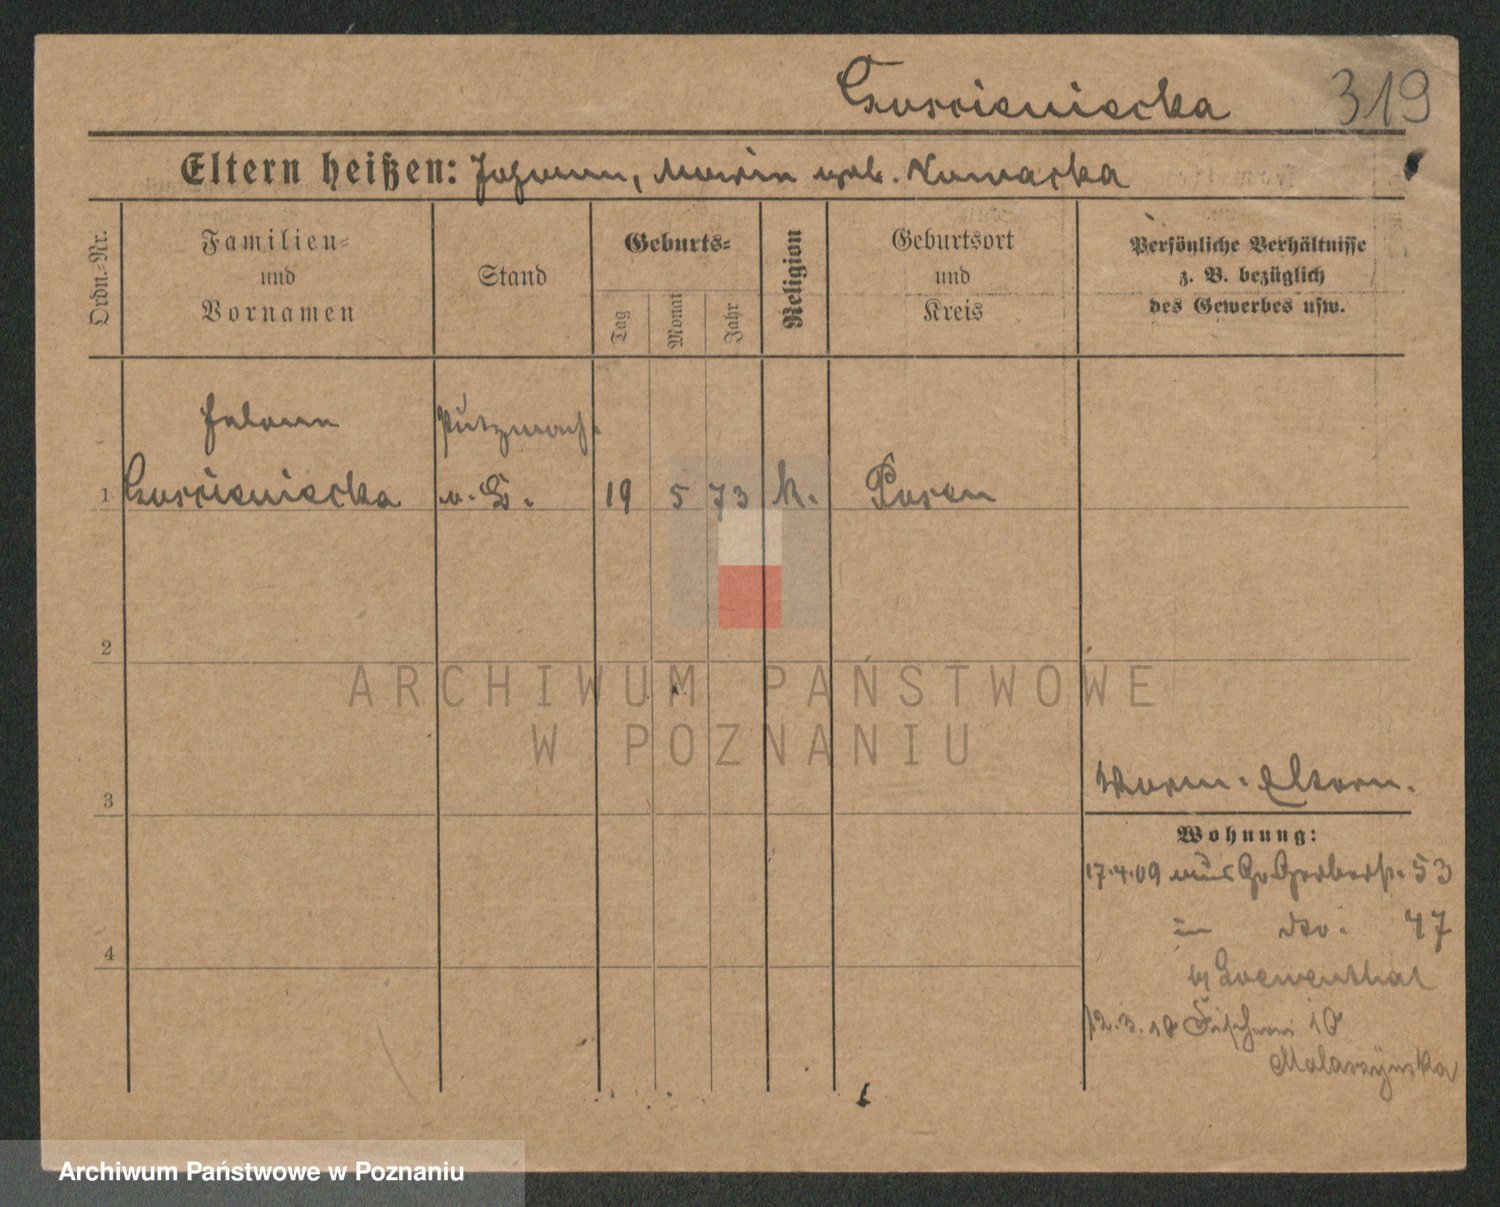 319
Eltern heißen: Johann, Maria geb. Nowacka
Ordn.-Nr.
Familien-
und
Vornamen
Stand
Geburts-
Tag
Monat
Jahr
Religion
Geburtsort
und
Kreis
Persönliche Verhältnisse
z. B. bezüglich
des Gewerbes usw.
Helene
Putzmach.
1
19 5 73 k. Posen
2
3
4
Eltern.
Wohnung:
17.4.09 aus Gr Gerberstr. 53
in dto. 47
b/ Loewenthal
12.3.10 Fischerei 10
Malaszyńska
ARCHIWUM PAŃSTWOWE
W POZNANIU
Archiwum Państwowe w Poznaniu